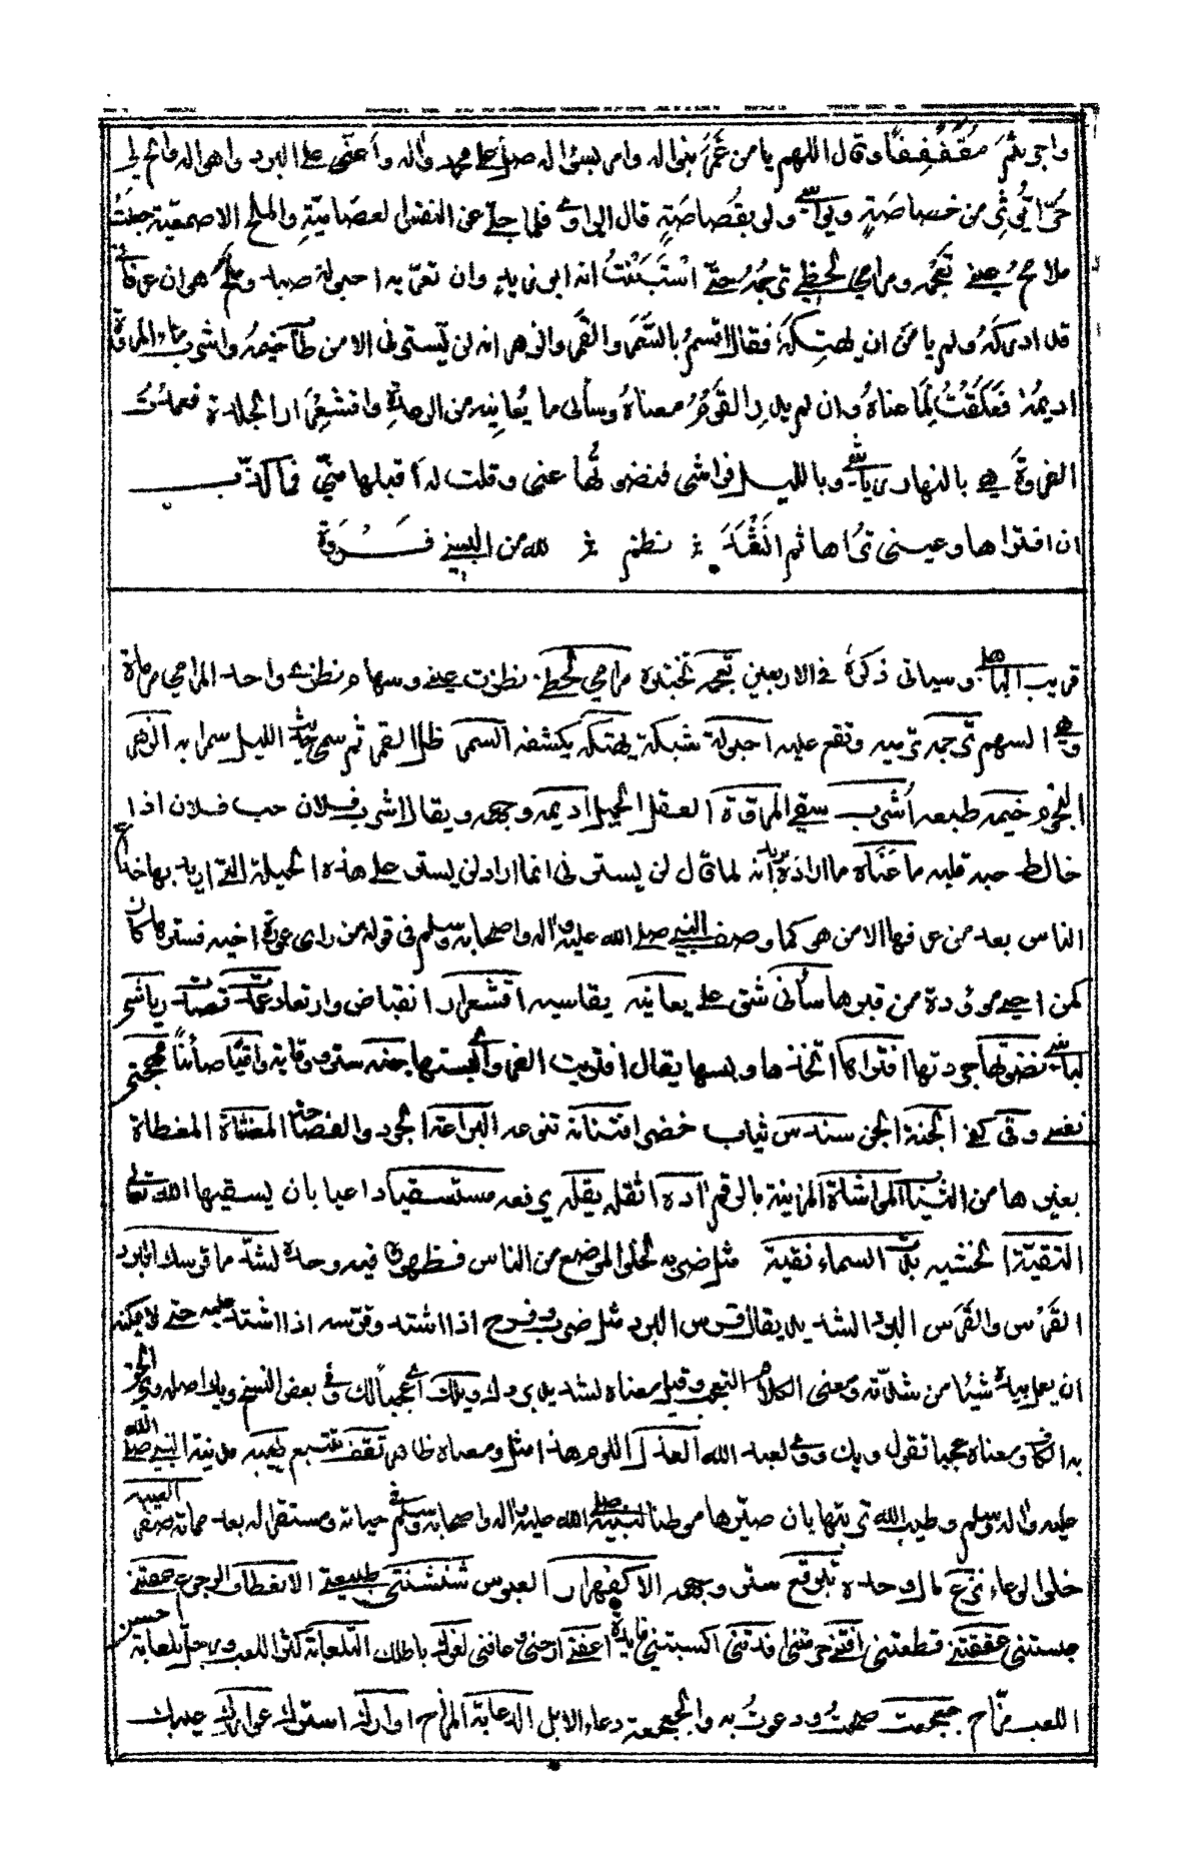 واجرنثم مقفقفا وقال اللهم يا من غمر بنواله وامر بسؤاله صل على محمد وآله واعني على البرد واهواله واتح لي
حرا يؤثر من خصاصة ويواسي ولو بقصاصة قال الراوي فلما جلى عن النفس العصامية والملح الاصمعية جعلت
ملامح عيني تعجمه ومرامي لحظي ترجمه حتى استبنت انه ابو زيد وان تعريه احبولة صيد ولمح هو ان عرفاني
قد ادركه ولم يامن ان يهتكه فقال اقسم بالسمر والقمر والزهر انه لن يسترني الا من طاب خيمه واشرب ماء المروة
اديمه فعقلت ما عناه وان لم يدر القوم معناه وساءني ما يعانيه من الرعدة واقشعرار الجلدة فعمدت
الفروة هي بالنهار رياشي وبالليل فراشي فنضوتها عني وقلت له اقبلها مني فما كذب
ان افتراها وعيني تراها ثم انشد نظم لله من البسني فروة
قريب وسياتي ذكره في الاربعين تعجمه تختبره مرامي لحظي نظرت عيني وسهام نظري واحد المرامي مرماة
وهي السهم ترجمه ترميه وتقع عليه احبولة شبكة يهتكه يكشفه السمر ظل القمر ثم سمي حديث الليل سمرا به الزهر
النجوم خيمه طبعه اشرب سقي المروة العقل الجميل اديمه وجهه ويقال اشرب فلان حب فلان اذا
خالط حبه قلبه ما عناه ما اراده لانه لما قال لن يسترني انما اراد لن يستر على هذه الحيلة التي اريد بها
الناس بعد من عرفها الا من هو كما وصف النبي صلى الله عليه وآله واصحابه وسلم في قوله من راى عورة اخيه فسترها كان
كمن احيى موؤدة من قبرها ساءني شق علي يعانيه يقاسيه اقشعرار انقباض وارتعاد عمدت قصدت رياشي
لباسي نضوتها جردتها افتراها اتخذها ولبسها يقال افتريت الفرو اي لبستها جنة سترة وقاية واقيا صائنا مهجتي
نفسي وقى كفى الجنة الجن سندس ثياب خضر افتنانه تنوعه البراعة الجود والفصاحة المغشاة المغطاة
بعيرها من الثياب الموشاة المزينة بالرقم آده اثقله يقله يرفعه مستسقيا داعيا بان يسقيها الله تعالى
النقية الخشية بلد السماء نقية مثل ضربه لخلو الموضع من الناس فظهوره فيه وحده لشد ما قرسك البرد
القرس والقرس البرد الشديد يقال قرس البرد مثل ضرب وفرح اذا اشتد وقرسه اذا اشتد عليه حتى لا يمكنه
ان يعمل بيده شيئا من شدته ومعنى الكلام التعجب وقيل معناه لشديد بردك ويلك اي عجبا لك وفي بعض النسخ ويك اصله وي الحق
به الكاف ومعناه عجبا تقول ويك ووي لعبد الله العذل اللوم هذا مثل ومعناه ظاهر تقف تتبع طيبة مدينة النبي صلى الله
عليه وآله وسلم وطيب الله تربتها بان صيرها موطنا لنبيه صلى الله عليه وآله واصحابه وسلم في حياته ومستقرا له بعد مماته صفر العيبة
خلو الوعاء نزع مال وحده تبرقع ستر وجهه الاكفهرار العبوس شنشنتي طبيعتي الانعطاف الرجوع عقتني
حبستني عققتني قطعتني افتني حرمتني افدتني اكسبتني فايدة اعفني ارحني وعافني لغوك باطلك التلعابة كثير اللعب ورجل تلعابة
اللعب مزاح جعجعت صحت ودعوت به والجعجعة دعاء الابل الدعابة المزاح اوارك استرك عوارك عيبك